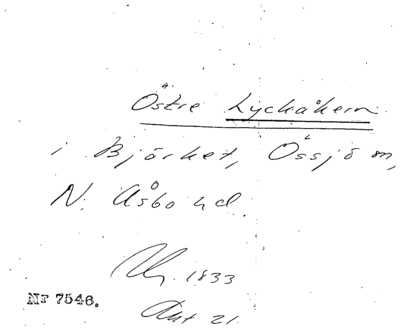 Östre Lyckåkern
i Björket, Össjö sn,
N. Åsbo hd.
1833
Nr 7546.
Akt 21.